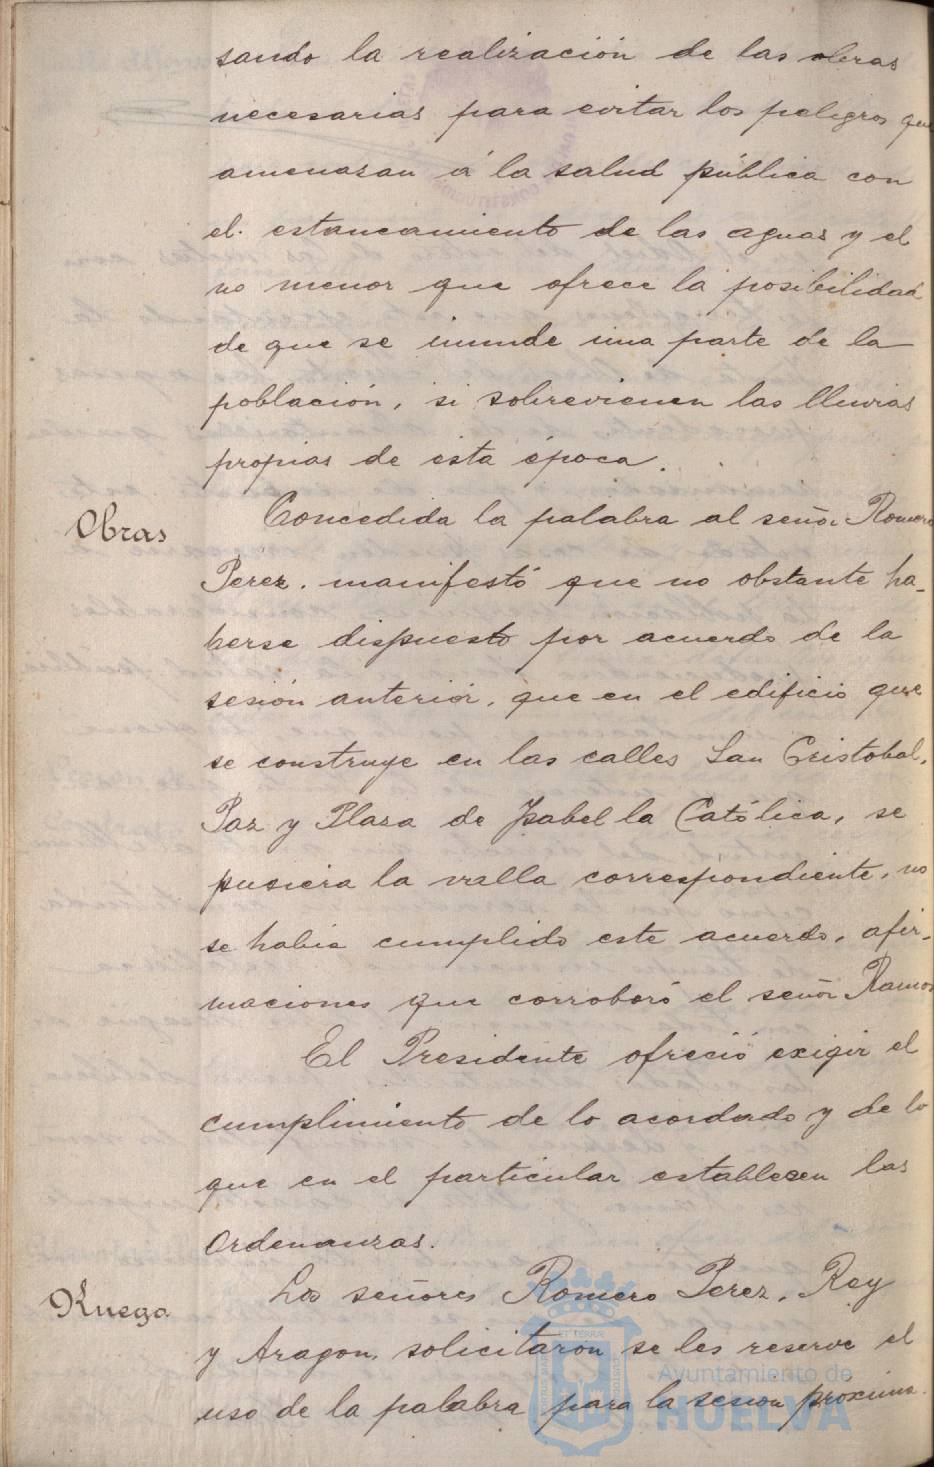 sando la realización de las obras
necesarias para evitar los peligros que
amenasan á la salud pública con
el estancamiento de las aguas y el
no menor que ofrece la posibilidad
de que se inunde una parte de la
población, si sobrevienen las lluvias
propias de esta época.
Obras
Concedida la palabra al señor Romero
Perez. manifestó que no obstante ha-
berse dispuesto por acuerdo de la
sesión anterior, que en el edificio que
se construye en las calles San Cristobal,
Paz y Plasa de Isabel la Católica, se
pusiera la valla correspondiente, no
se habia cumplido este acuerdo, afir-
maciones que corroboró el señor Ramos
El Presidente ofreció exigir el
cumplimiento de lo acordado y de lo
que en el particular establecen las
Ordenanzas.
Ruego
Los señores Romero Perez, Rey
y Aragon, solicitaron se les reserve el
uso de la palabra para la sesion próxima.
Ayuntamiento de
HUELVA